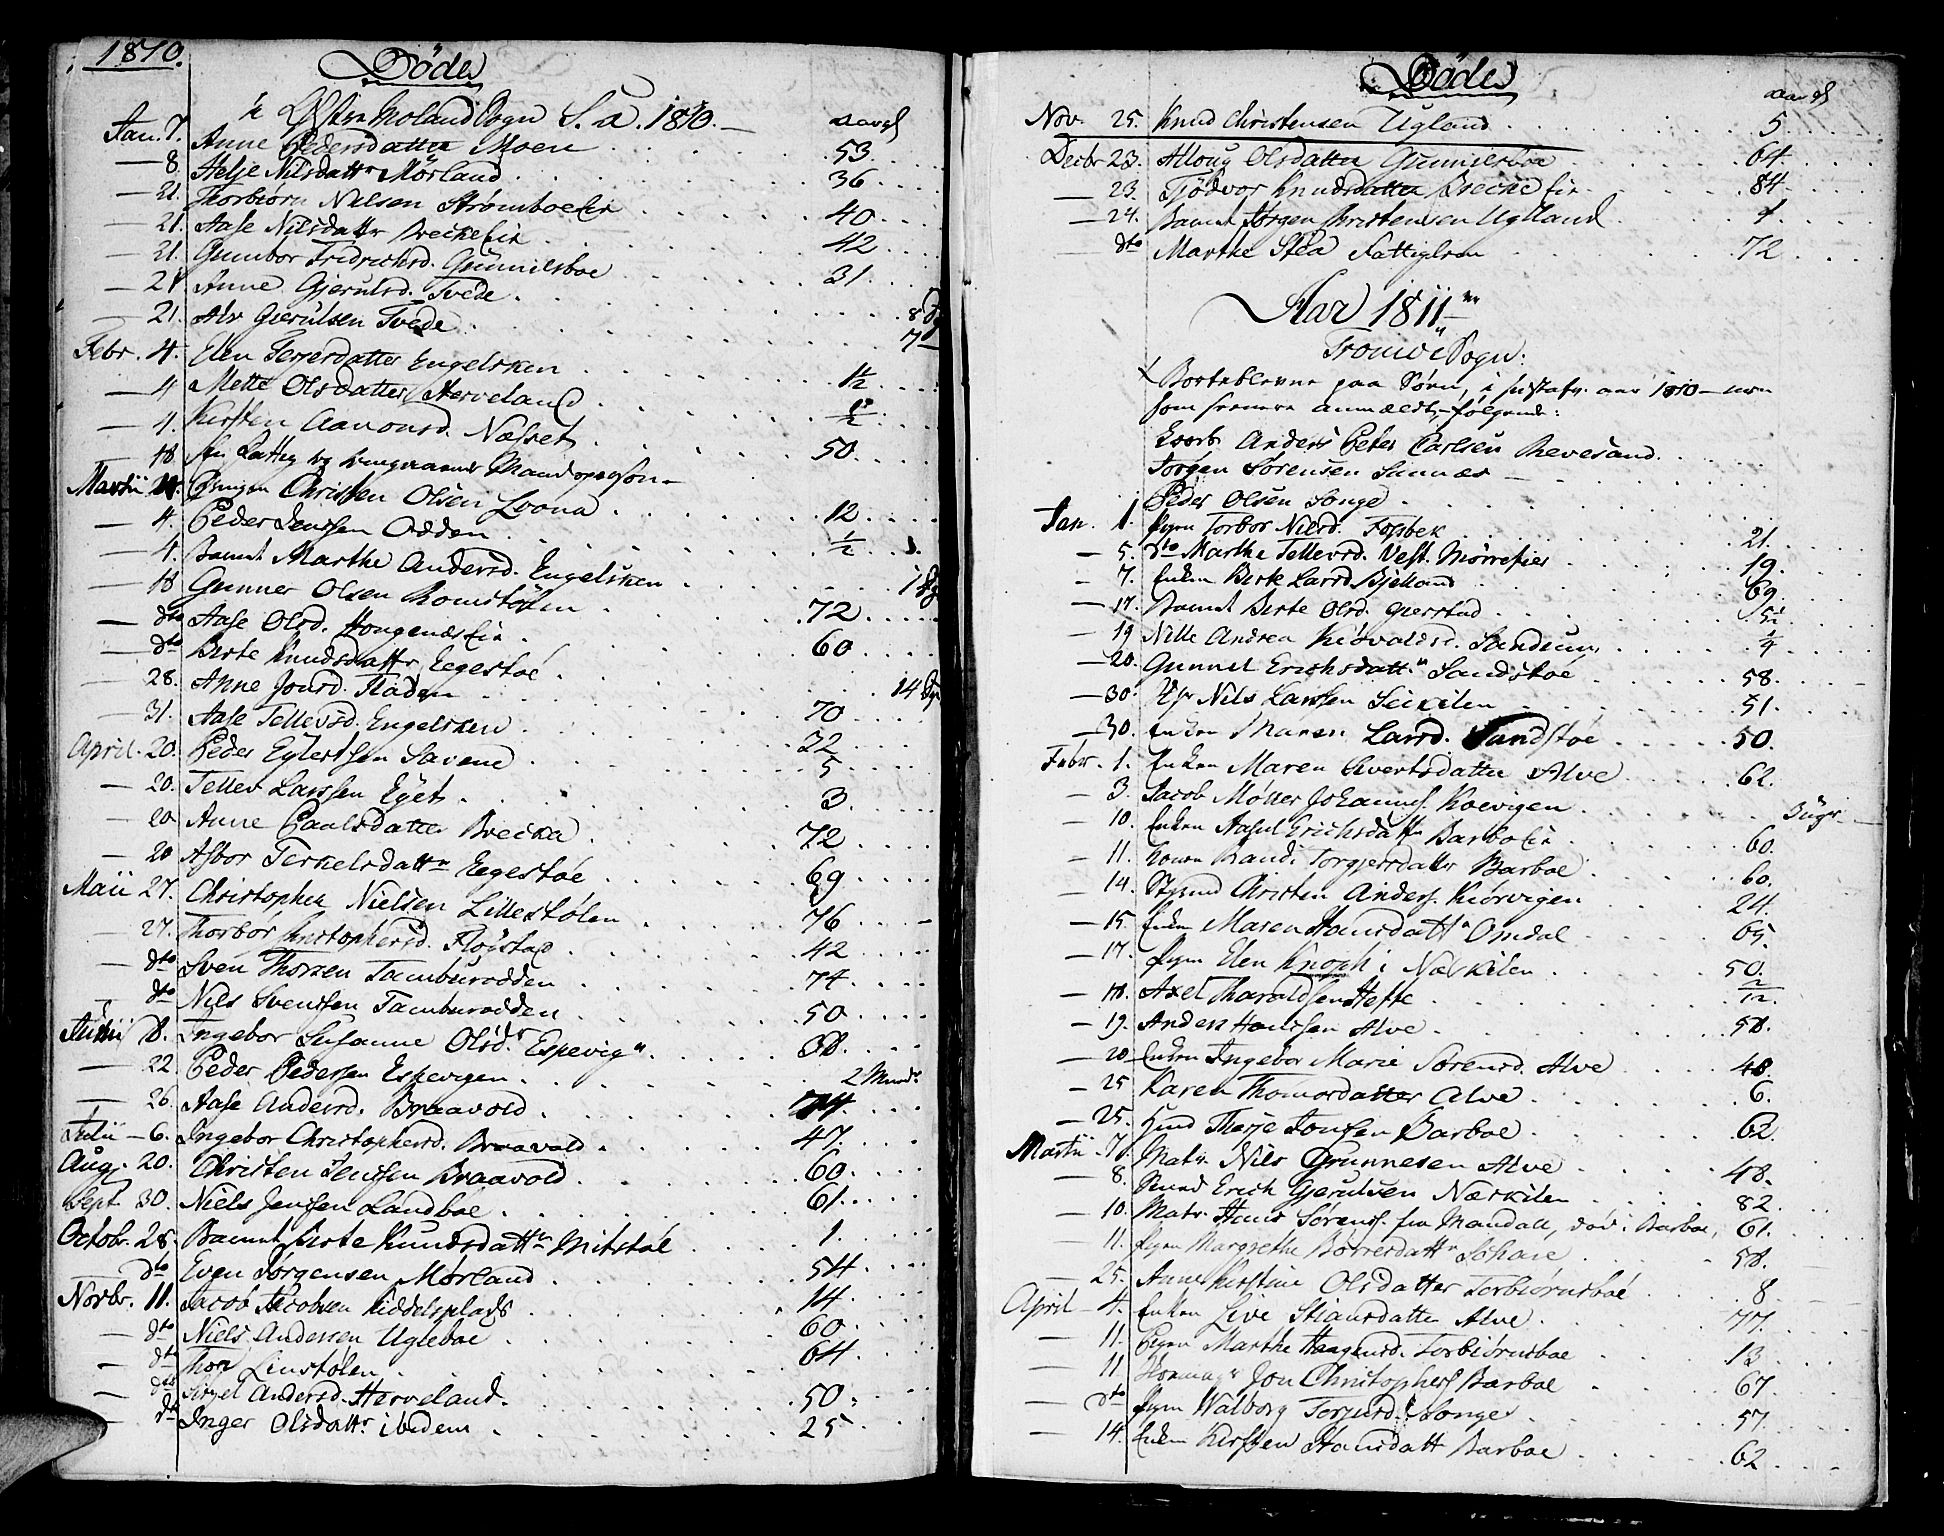 1810.
Døde
i Østre Moland Sogn S. a. 1810.
Jan. 7. Anne Pedersdatter Moen 53
8. Helje Nilsdattr Mørland 36
21. Thorbiørn Nilsen Strømboe 40
21. Aase Nilsdattr 42
21. Gumbor Fridrichsd. Gunnilsboe 31
21 Anne Gjerulsd. Tvede
21. Alv Gjerulsen Tvede 8
Febr. 4. Elen Terjersdatter Engelsken 7
4 Mette Olsdatter Herveland 1½
4. Kirsten Aanonsd. Næsset
18 50
Martii Christen Olsen Loona
4. Peder Jenssen Odden 12
4. Barnet Marthe Andersd. Engelsken ½
18 Gunner Olsen Romstølen 1
dto Aase Olsd. 72
dto Berte Knudsdattr Egestoe 60
28. Anne Jonsd. Fladen 14
31. Aase Tellevsd. Engelsken 70
April. 20. Peder Eylertsen Savene 32
20. Tellev Larssen Eget 5
20 Anne Paulsdatter Brecka 3
20 Asbor Terkelsdattr Egestøe 72
Maii 27. Christopher Nielsen Lillestølen 69
27. Thorbor Christophersd. Fløystad 76
dto Sven Thorsen Tamburodden 42
dto Nils Svendsen Tamburodden 74
Junii 8. Ingebor Susanne Olsdr Espevign 50
22. Peder Pedersen Espevigen 38
26. Aase Andersd. Braavold 2
Julii 6. Ingebor Christophersd. Braavold 47
Aug. 20. Christen Jenssen Braavold 60
Sept 30. Niels Jenssen Landboe 61
Octobr. 28. Barnet Kirste Knudsdattr Mitstøl 1.
dto Even Jørgensen Mørland 54
Novbr. 11. Jacob Jacobsen Kiddelsplads 14
dto Niels Andersen Ugleboe 60
dto Thor Linstølen 64
dto Sissel Andersd. Herveland 50
dto Inger Olsdattr ibidem 25
Døde
Nov. 25. Knud Christensen Ugland 5
Decbr 23. Olsdatter Gunnilsboe 64
23. Tjodvor Knudsdatter 84
24. Barnet Jørgen Christensen Ugland
dto Marthe Stea Fattiglem 72
Aar 1811
Tromøe Sogn.
Bortblevne paa Søen, i sidste aar 1810
som anmældt, følgende:
Anders Peter Carlsen Revesand
Jørgen Sørensen Sannæs
Peder Olsen Songe
Jan. 1. Pigen Torbor Nilsd. 21
5. dto Marthe Tellevsd. Vest. 19
7. Enken Berte Larsd Bjelland 69
17. Barnet Berte Olsd. Gjerstad
19 Nille Andrea ¼
20. Gunnel Erichsdattr Sandstøe 58.
30. Nils Larssen Seikilen 51.
30. Enken Maren Larsd. Sandstøe 50.
Febr. 1. Enken Maren Sivertsdatter Alve 62.
3. Jacob Møller Johannes. 3 Uger
10. Enken Aasul Erichsdattr 60.
11. Konen Randi Torgjersdatter Barboe 60.
14. Christen Anders. Kiørvigen 24.
15. Enken Maren Hansdattr Omdal 65.
17. Pigen Elen Knoph i Næskilen 50.
18. Axel Tharaldsen Hesse
19. Anders Hanssen Alve 58.
20 Enken Ingebor Marie Sørensd. Alve 48.
25 Karen Thomasdatter Alve 6.
25. Terje Jonsen Barboe 62.
Martii 7. Matr. Nils Gunnesen Alve 48.
8. Erich Gjerulsen Næskilen 82.
10. Matr. Hans Sørens. fra Mandall, død i Barboe, 61.
11. Pigen Margrethe 58.
25. Anne Kirstine Olsdatter Torbiørnsboe 8
April 4. Enken Live Stiansdatter Alve 77.
11. Pigen Marthe Haagensd. Torbiørnsboe 13
11. Jon Christophers. Barboe 67
dto Pigen Walborg Torjusd. Songe 57.
14. Enken Kirsten Hansdatt Barboe 62